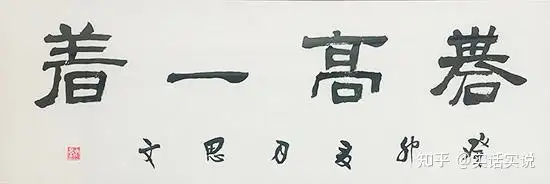 碁高一着
癸卯夏月思文
知乎 @实话实说